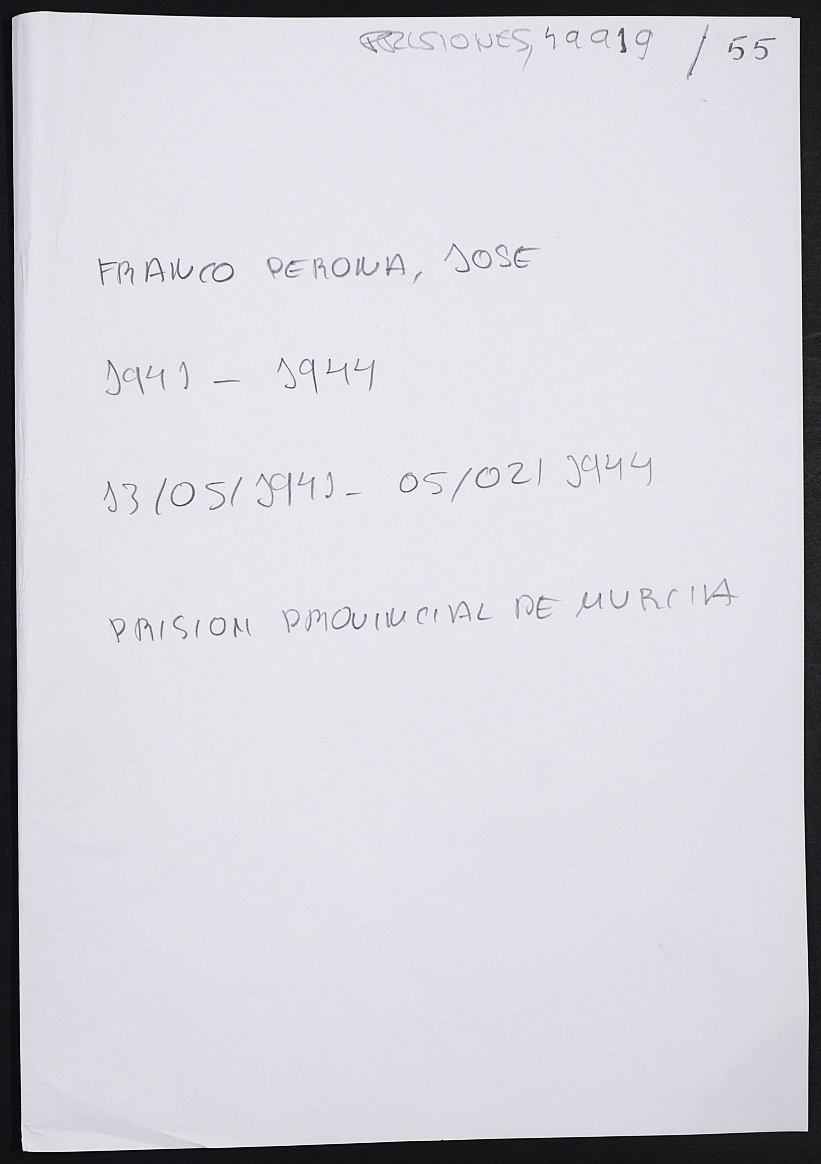 PRISIONES, 49919 / 55
FRANCO PERONA, JOSE
1941 - 1944
13/05/1941 - 05/02/1944
PRISION PROVINCIAL DE MURCIA